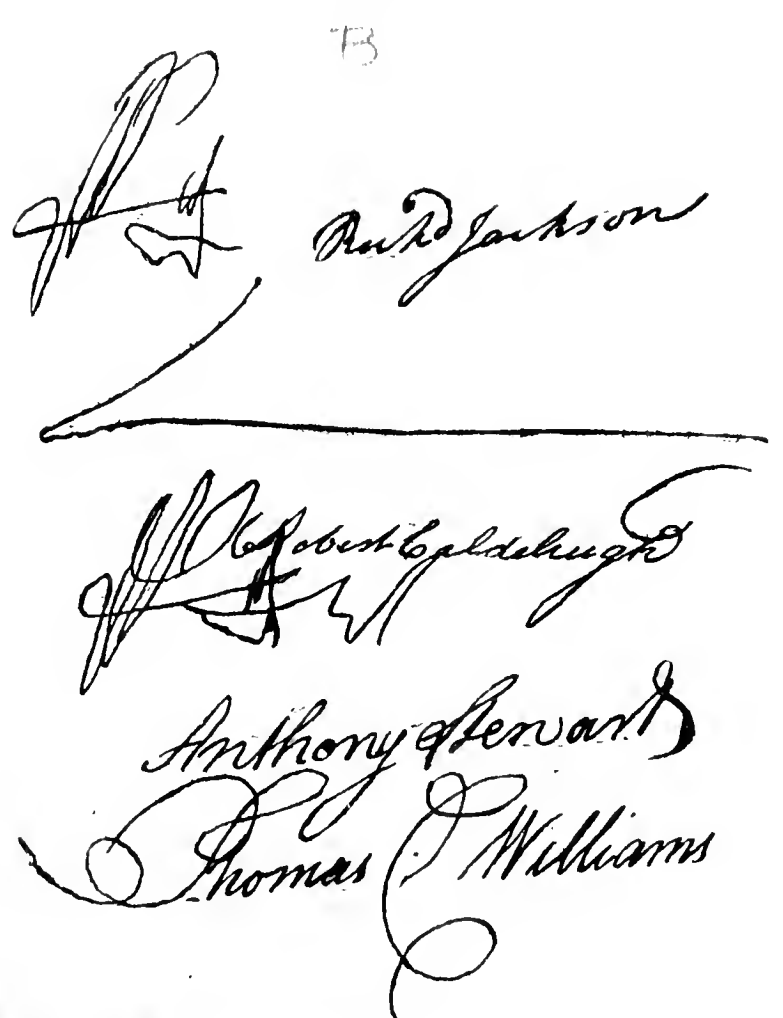 Richd Jackson
Robert Caldcleugh
Anthony Stewart
Thomas C Williams